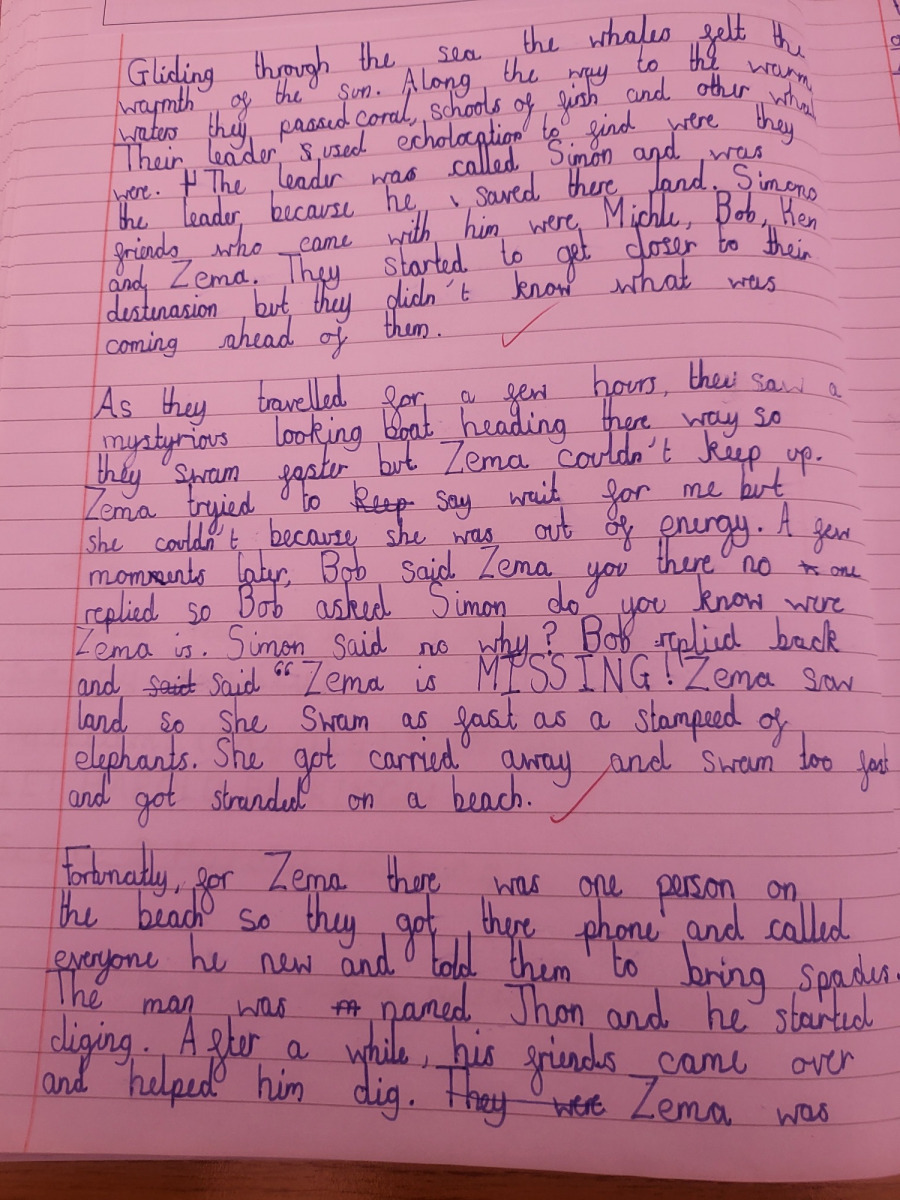 Gliding through the sea the whales felt the
warmth of the sun. Along the way to the warm
waters they passed coral, schools of fish and other
Their leader used echolocation to find were they
were. The leader was called Simon and was
the leader because he saved there land. Simons
friends who came with him were, Michle, Bob, Ken
and Zema. They started to get closer to their
destenasion but they didn't know what was
coming ahead of them.
As they travelled for a few hours, they saw a
mystyrious looking boat heading there way so
they swam faster but Zema couldn't keep up.
Zema tryied to keep say wait for me but
she couldn't because she was out of energy. A few
moments later, Bob said Zema you there no one
replied so Bob asked Simon do you know were
Zema is. Simon said no why? Bob replied back
and said said "Zema is MISSING! Zema saw
land so she swam as fast as a stampeed of
elephants. She got carried away and swam too fast
and got stranded on a beach.
Fortunatly, for Zema there was one person on
the beach so they got there phone and called
everyone he new and told them to bring spades.
The man was named Jhon and he started
diging. After a while, his friends came over
and helped him dig. They were Zema was